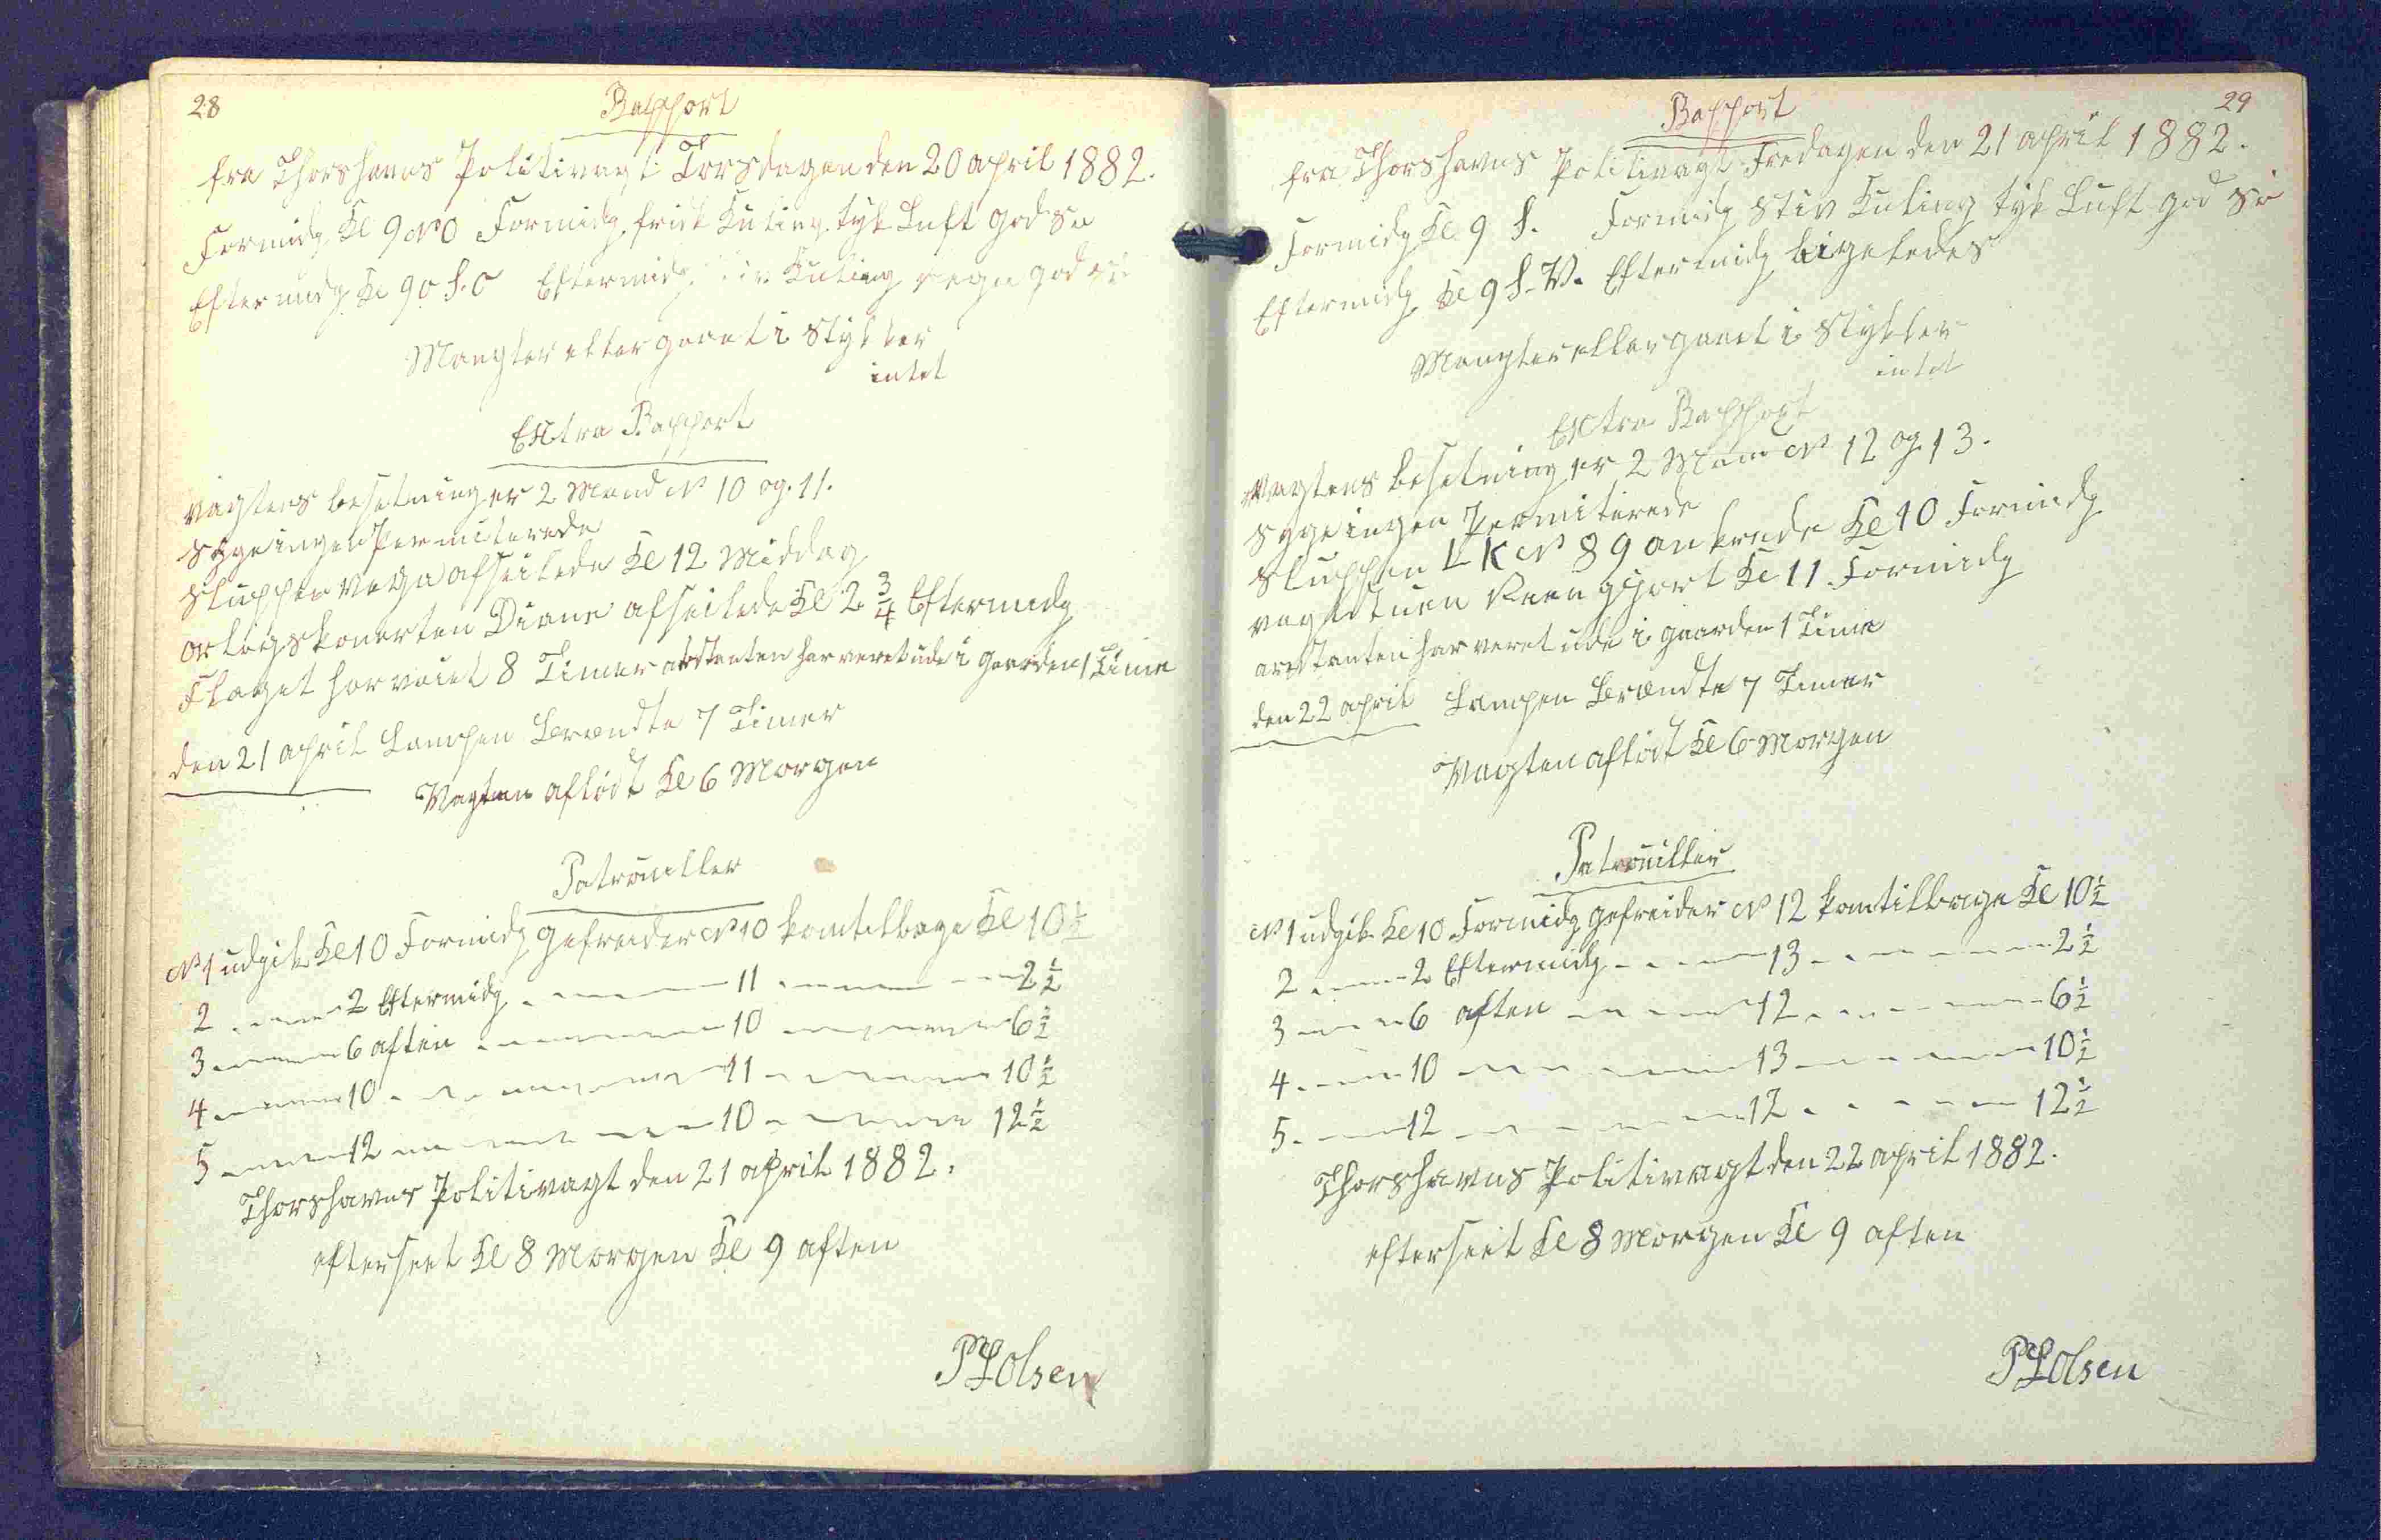 28
Rapport
fra Thorshavns Politivagt Torsdagen den 20 april 1882.
Formidg. Kl 9 N O Formidg. frisk Kuling. tyk Luft god Sø
Eftermidg. Kl 9 O S. O Eftermidg. Kuling regn god
Mangler eller gaaet i Stykker
intet
Extra Rapport
Vagtens besetning er 2 Mand N 10 og. 11.
Syge ingen Permiterede
Sluppen Vega afseilede Kl 12 Middag
orlogskonerten Diana afseilede Kl 2 3/4 Eftermidg
Flaget har vaiet 8 Timer arestanten har veret ude i gaarden 1 Time
den 21 april Lampen Brændte 7 Timer
Vagten afløst Kl 6 Morgen
Patrouiller
N 1 udgik Kl 10 Formidg gefreider N 10 kom tilbage Kl 10 1/2
2 - - - 2 Eftermidg - - - 11 - - - 2 1/2
3 - - - 6 aften - - - 10 - - - 6 1/2
4 - - - 10 - - - 11 - - - 10 1/2
5 - - - 12 - - - 10 - - - 12 1/2
Thorshavns Politivagt den 21 april 1882.
efterseet Kl 8 Morgen Kl 9 aften
Olsen
29
Rapport
fra Thorshavns Politivagt Fredagen den 21 april 1882.
Formidg Kl 9 S. Formidg stiv Kuling tyk Luft god Sø
Eftermidg Kl 9 S. V. Eftermidg ligeledes
Mangler eller gaaet i Stykker
intet
Extra Rapport
Vagtens besetning er 2 Mand N 12 og 13.
Syge ingen Permiterede
Sluppen L K N 89 ankrede Kl 10 Formidg
vagtstuen Reengjort Kl 11 Formidg
arestanten har veret ude i gaarden 1 Time
den 22 april Lampen Brændte 7 Timer
Vagten afløst Kl 6 Morgen
Patrouiller
N 1 udgik Kl 10 Formidg gefreider N 12 kom tilbage Kl 10 1/2
2 - - - 2 Eftermidg - - - 13 - - - 2 1/2
3 - - - 6 aften - - - 12 - - - 6 1/2
4 - - - 10 - - - 13 - - - 10 1/2
5 - - - 12 - - - 12 - - - 12 1/2
Thorshavns Politivagt den 22 april 1882.
efterseet Kl 8 Morgen Kl 9 aften
Olsen